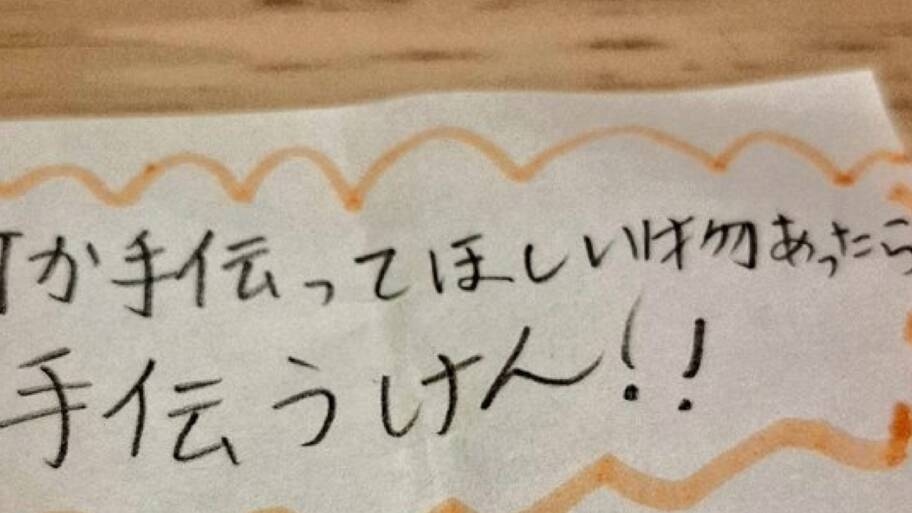 か手伝ってほしい物あったら
手伝うけん!!